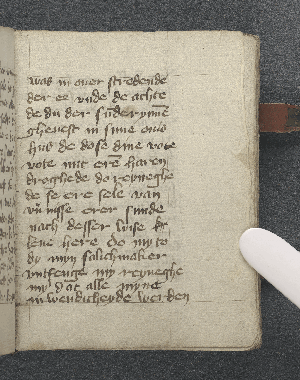 was in auer stredende
der ee vnde de achte
de du der sunderynnē
gheuest in sime
hus de dose dine vote
vote mit erē haren
droghede do reyneghe
de se ere sele van
vnisse erer sunde
nach desser wise
leue here do my to
do myn salichmaker
vntfenge my reyneghe
my dat alle myne
inwendicheyde werden